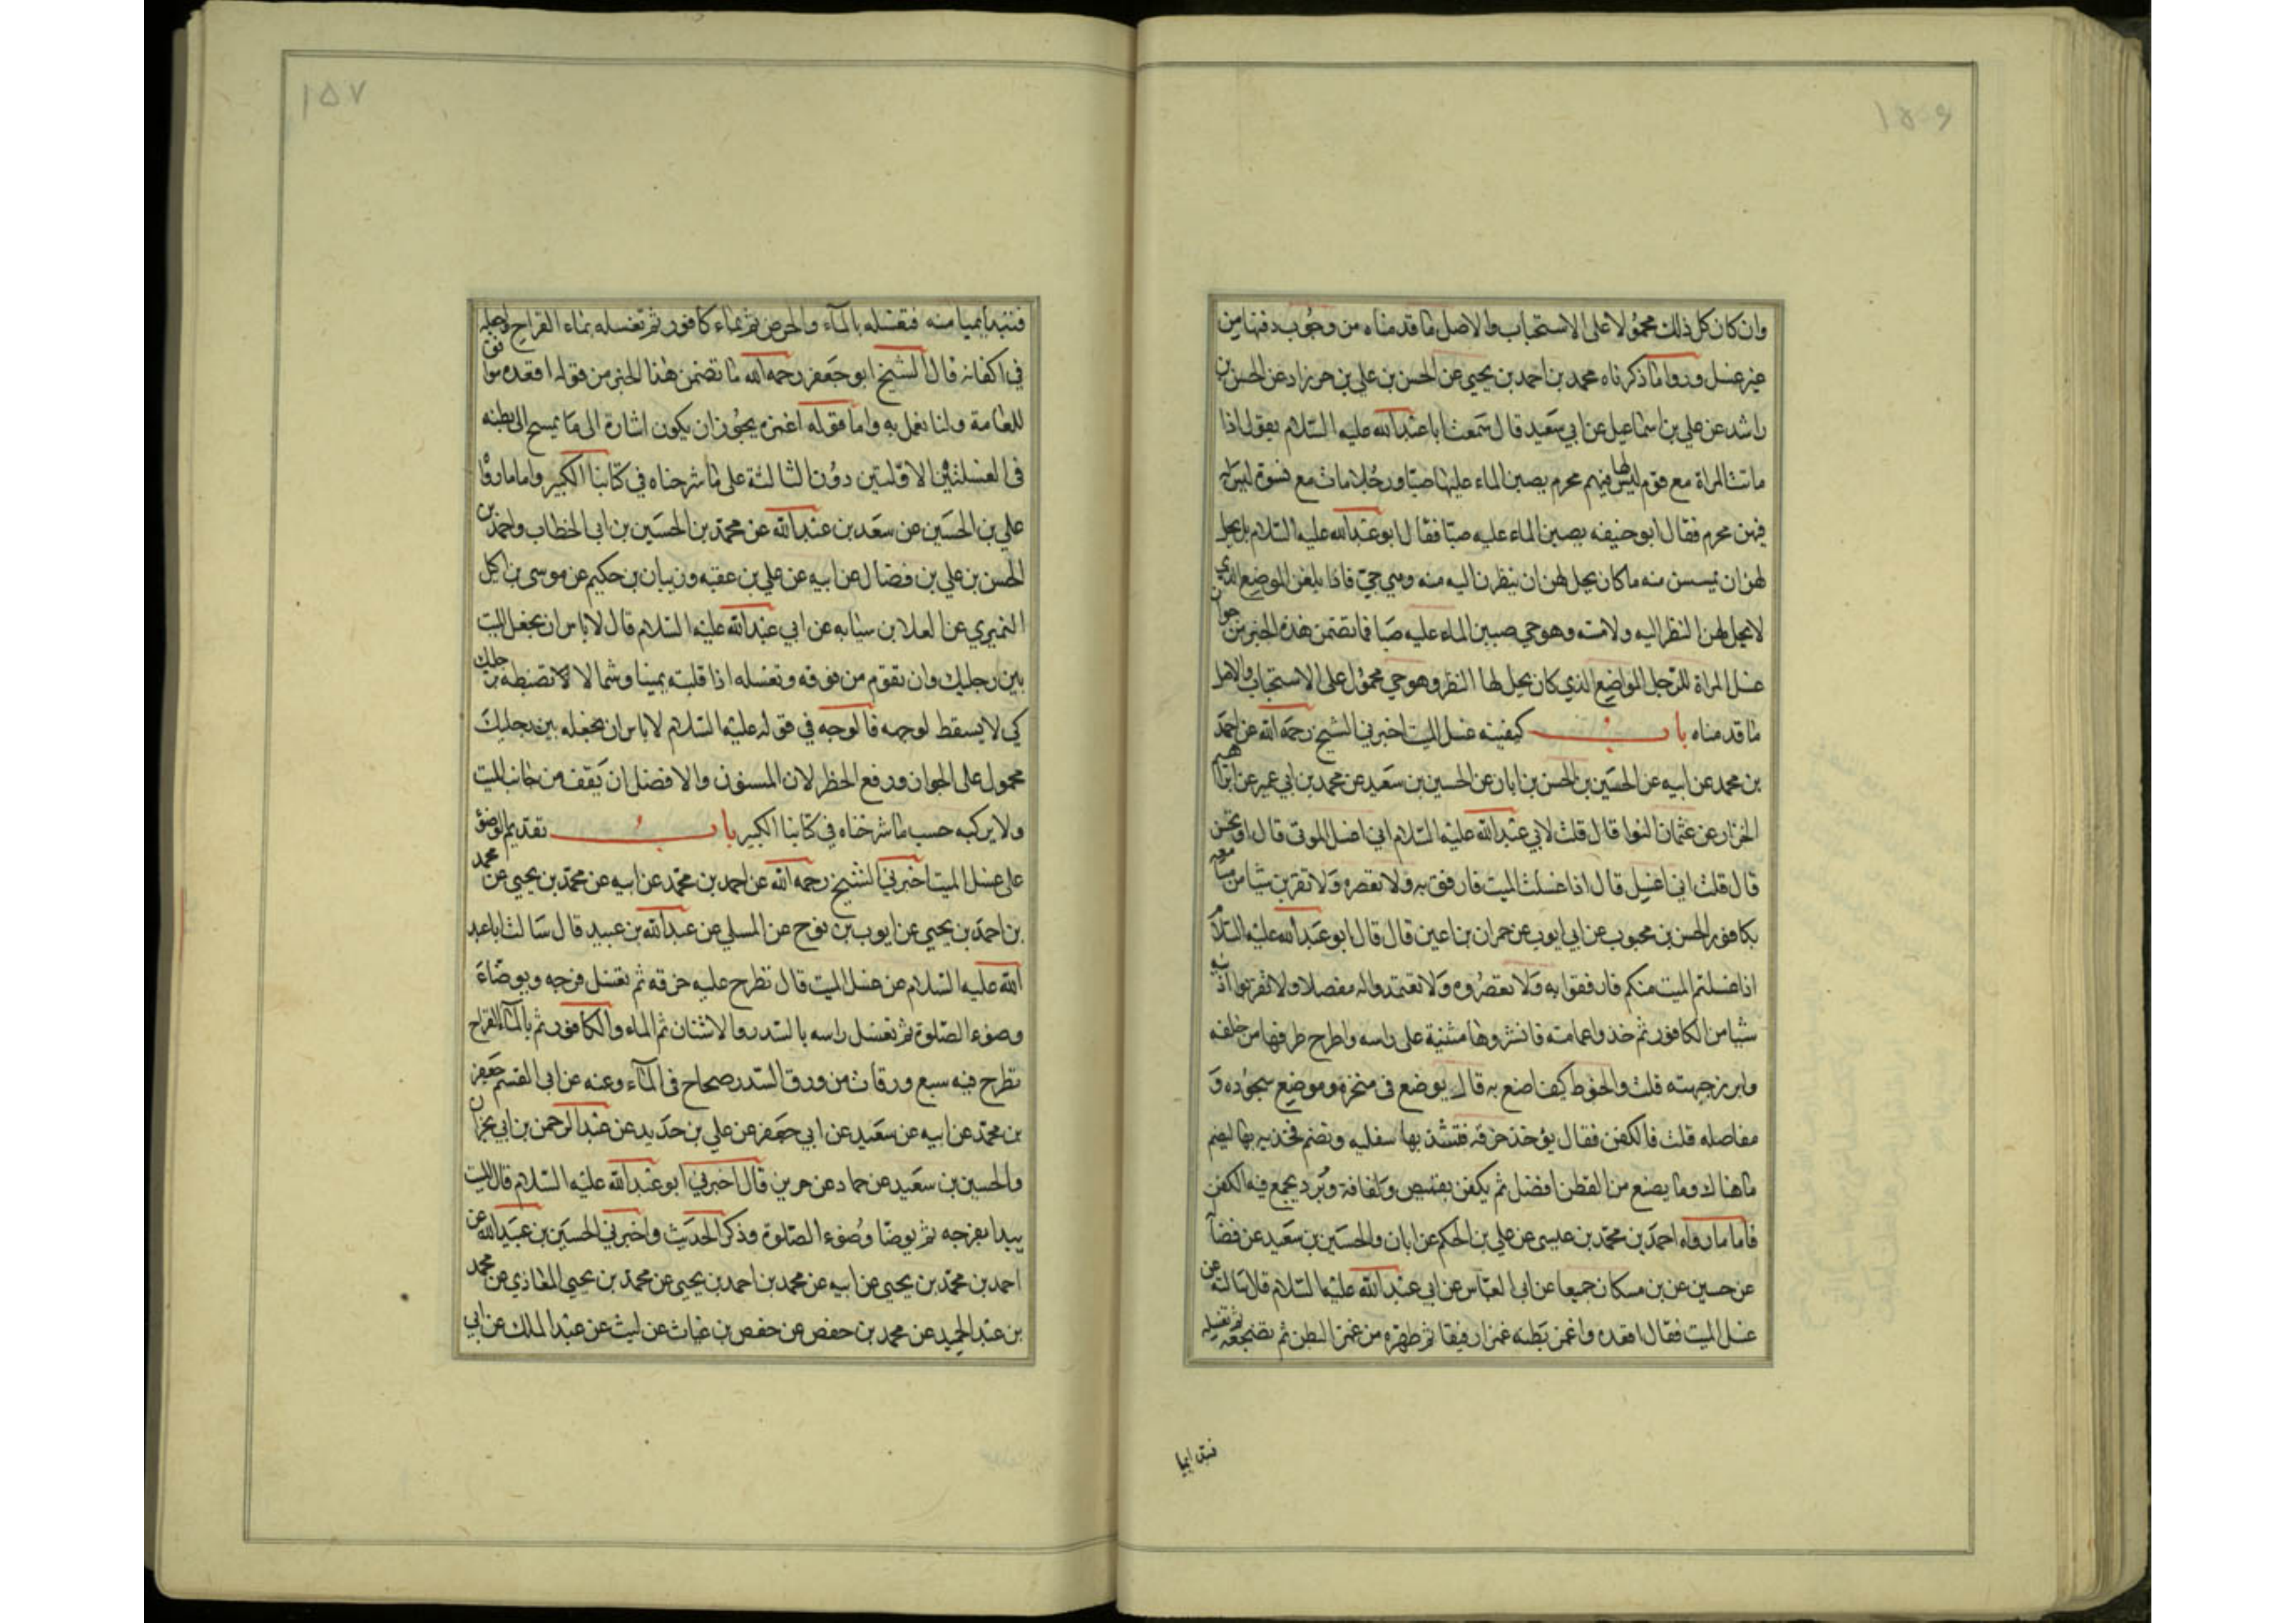 ١٥٦
وان كان كل ذلك محمولا على الاستحباب والاصل ما قدمناه من وجوب دفنها من
غير غسل وروا ما ذكرناه محمد بن احمد بن يحيى عن الحسن بن علي بن خرزاد عن الحسن بن
راشد عن علي بن اسماعيل عن ابي سعيد قال سمعت ابا عبد الله عليه السلام يقول اذا
ماتت المراة مع قوم ليس لها فيهم محرم يصبن الماء عليها صبا ورجل مات مع نسوة ليس له
فيهن محرم فقال ابو حنيفه يصبن الماء عليه صبا فقال ابو عبد الله عليه السلام بل يحل
لهن ان يمسسن منه ما كان يحل لهن ان ينظرن اليه منه وهي حي فاذا بلغن الموضع الذي
لا يحل لهن النظر اليه ولا مسه وهو حي صببن الماء عليه صبا فما تضمن هذه الخبر من جواز
غسل المراة للرجل المواضع الذي كان يحل لها النظر وهو حي محمول على الاستحباب والاصل
ما قدمناه باب كيفية غسل الميت اخبرني الشيخ رحمه الله عن احمد
بن محمد عن ابيه عن الحسين بن الحسن بن ابان عن الحسين بن سعيد عن محمد بن ابي عمير عن ابراهيم
الخزاز عن عثمان النوا قال قلت لابي عبد الله عليه السلام اني اغسل الموتى قال او تحسن
قال قلت اني اغسل قال اذا غسلت الميت فارفق به ولا تعصره ولا تقربن شيا من مسامعه
بكافور الحسن بن محبوب عن ابي ايوب عن حمران بن اعين قال قال ابو عبد الله عليه السلام
اذا غسلتم الميت منكم فارفقوا به ولا تعصروه ولا تغمزوا له مفصلا ولا تقربوا اذنيه
شيا من الكافور ثم خذوا عمامته فانشروها مثنية على راسه واطرح طرفها من خلفه
وابرز جبهته قلت والحنوط كيف اصنع به قال يوضع في منخره وموضع سجوده و
مفاصله قلت فالكفن فقال يؤخذ خرقه فتشد بها سفليه وتضم فخذيه بها ليضم
ما هناك وما يصنع من القطن افضل ثم يكفن بقميص ولفافة وبرد يجمع فيه الكفن
فاما ما رواه احمد بن محمد بن عيسى عن علي بن الحكم عن ابان والحسين بن سعيد عن فضالة
عن حسين عن بن مسكان جميعا عن ابي العباس عن ابي عبد الله عليه السلام قال سالته عن
غسل الميت فقال اقعده واغمز بطنه غمزا رفيقا ثم طهره من غمز البطن ثم تضجعه ثم تغسله
فتبدا بميا
١٥٧
فتبدا بميامنه فتغسله بالماء والحرض ثم بماء كافور ثم تغسله بماء القراح واجعله
في اكفانه قال الشيخ ابو جعفر رحمه الله ما تضمن هذا الخبر من قوله اقعده موافق
للعامة ولسنا نعمل به واما قوله اغمزه يجوز ان يكون اشارة الى ما يمسح الى بطنه
في الغسلتين الاولتين دون الثالثة على ما شرحناه في كتابنا الكبير واما ما رواه
علي بن الحسين عن سعد بن عبد الله عن محمد بن الحسين بن ابي الخطاب واحمد بن
الحسن بن علي بن فضال عن ابيه عن علي بن عقبه وذبيان بن حكيم عن موسى بن اكيل
النميري عن العلا بن سيابه عن ابي عبد الله عليه السلام قال لا باس ان يجعل الميت
بين رجليك وان تقوم من فوقه وتغسله اذا قلبته يمينا وشمالا لا تضبطه برجليك
كي لا يسقط لوجهه فالوجه في قوله عليه السلام لا باس ان يجعله بين رجليك
محمول على الجواز ورفع الحظر لان المسنون والافضل ان يقف من جانب الميت
ولا يركبه حسب ما شرحناه في كتابنا الكبير باب تقديم الوضوء
على غسل الميت اخبرني الشيخ رحمه الله عن احمد بن محمد عن ابيه عن محمد بن يحيى عن محمد
بن احمد بن يحيى عن ايوب بن نوح عن المسلي عن عبد الله بن عبيد قال سالت ابا عبد
الله عليه السلام عن غسل الميت قال تطرح عليه خرقه ثم تغسل فرجه ويوضاء
وضوء الصلوة ثم تغسل راسه بالسدر والاشنان ثم الماء والكافور ثم بالماء القراح
تطرح فيه سبع ورقات من ورق السدر صحاح في الماء وعنه عن ابي القسم جعفر
بن محمد عن ابيه عن سعيد عن ابي جعفر عن علي بن حديد عن عبد الرحمن بن ابي نجران
والحسين بن سعيد عن حماد عن حريز قال اخبرني ابو عبد الله عليه السلام قال الميت
يبدا بفرجه ثم يوضا وضوء الصلوة وذكر الحديث واخبرني الحسين بن عبيد الله عن
احمد بن محمد بن يحيى عن ابيه عن محمد بن احمد بن يحيى عن محمد بن يحيى المعاذي عن محمد
بن عبد الحميد عن محمد بن حفص عن حفص بن غياث عن ليث عن عبد الملك عن ابي